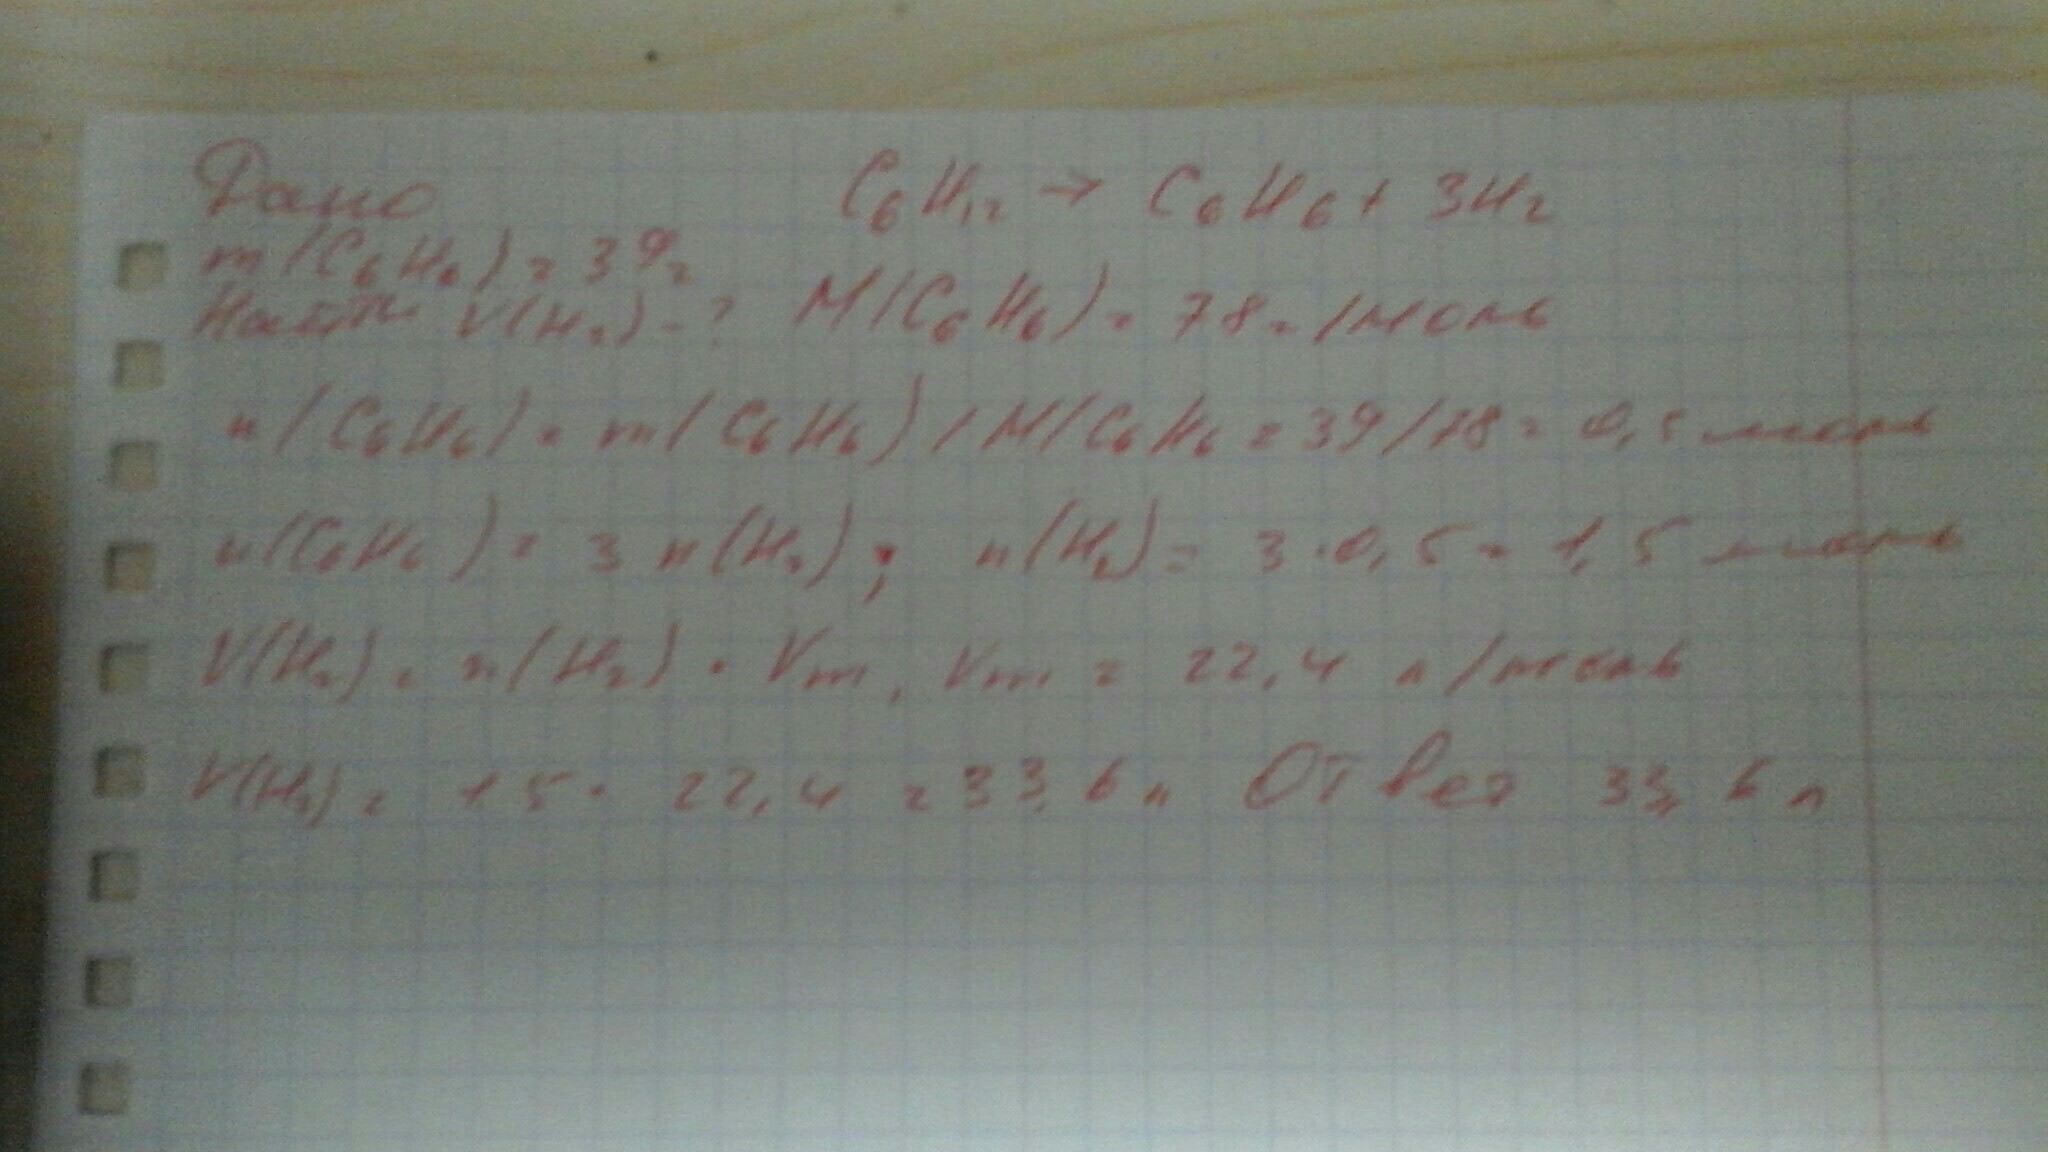 Дано C₆H₁₂ → C₆H₆ + 3H₂
m(C₆H₆) = 39г
Найти V(H₂) - ? M(C₆H₆) = 78г/моль
n(C₆H₆) = m(C₆H₆) / M(C₆H₆ = 39/78 = 0,5 моль
n(C₆H₆) = 3 n(H₂); n(H₂) = 3·0,5 = 1,5 моль
V(H₂) = n(H₂) · Vm, Vm = 22,4 л/моль
V(H₂) = 1,5 · 22,4 = 33,6 л Ответ 33,6 л